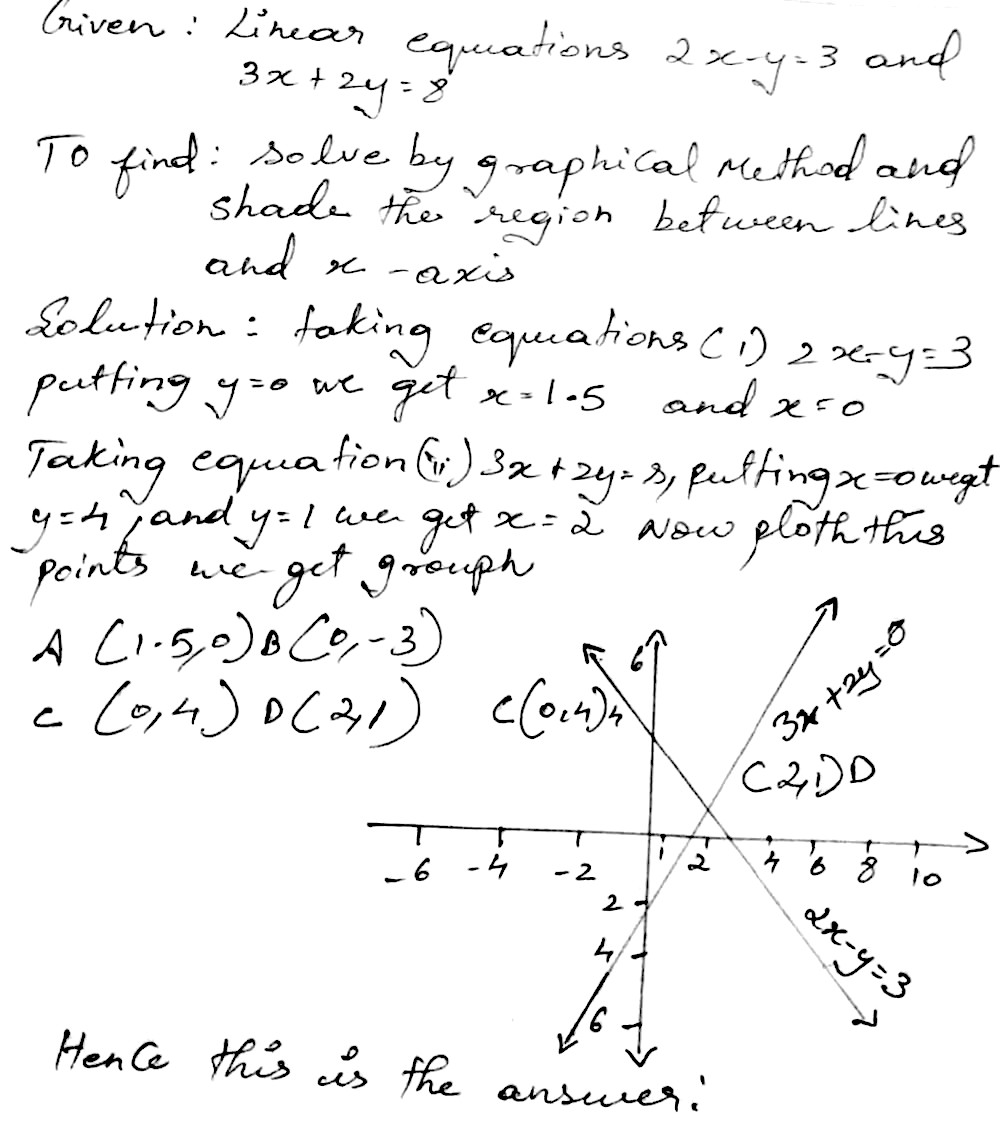 Given : Linear equations 2x-y=3 and
3x+2y=8
To find: solve by graphical Method and
shade the region between lines
and x -axis
Solution : taking equations (i) 2x-y=3
putting y=0 we get x=1.5 and x=0
Taking equation (ii) 3x+2y=8, putting x=0 weget
y=4, and y=1 we get x=2 Now ploth this
points we get grouph
A (1.5,0) B (0,-3)
C (0,4) D (2,1)
C(0,4) 4
6
3x+2y=8
(2,1) D
-6 -4 -2 1 2 4 6 8 10
2
4
6
2x-y=3
Hence this is the answer: